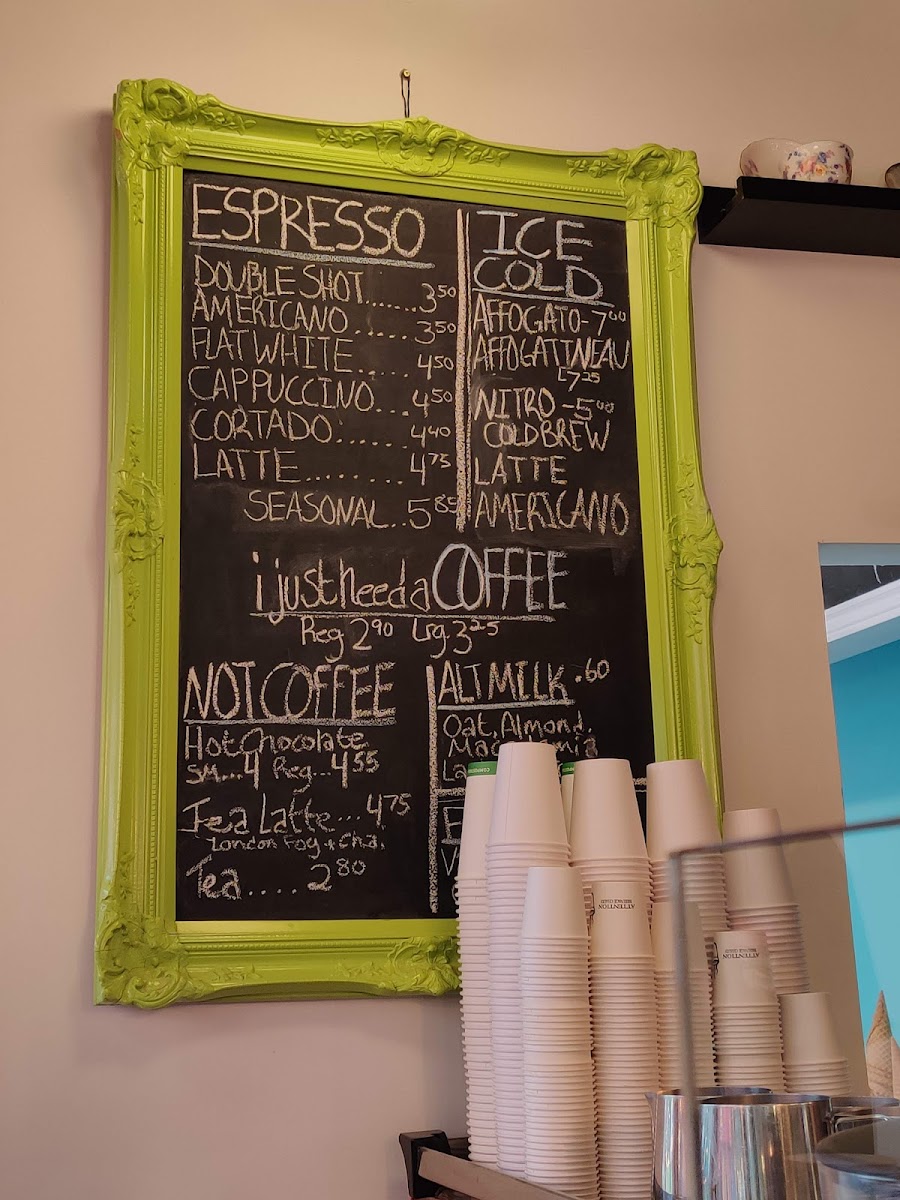 ESPRESSO
DOUBLE SHOT......3.50
AMERICANO......3.50
FLAT WHITE.....4.50
CAPPUCCINO...4.50
CORTADO......4.40
LATTE.........4.75
SEASONAL..5.85
ICE
COLD
AFFOGATO-7.00
AFFOGATINEAU
7.25
NITRO -5.00
COLD BREW
LATTE
AMERICANO
i just need a COFFEE
Reg 2.90 Lrg 3.25
NOT COFFEE
Hot Chocolate
SM...4 Reg...4.55
Tea Latte...4.75
London Fog + Chai
Tea.....2.80
ALT MILK .60
Oat, Almond,
ATTENTION
ATTENTION